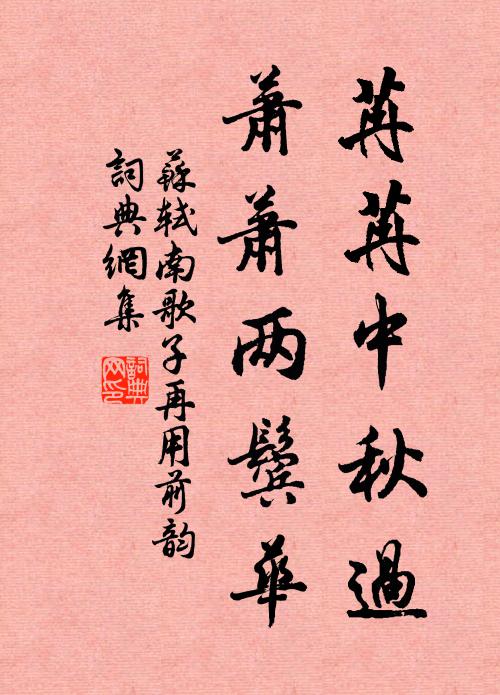 苒苒中秋過
蕭蕭两鬢華
蘇軾南歌子再用前韵
詞典網集
詞典
网印